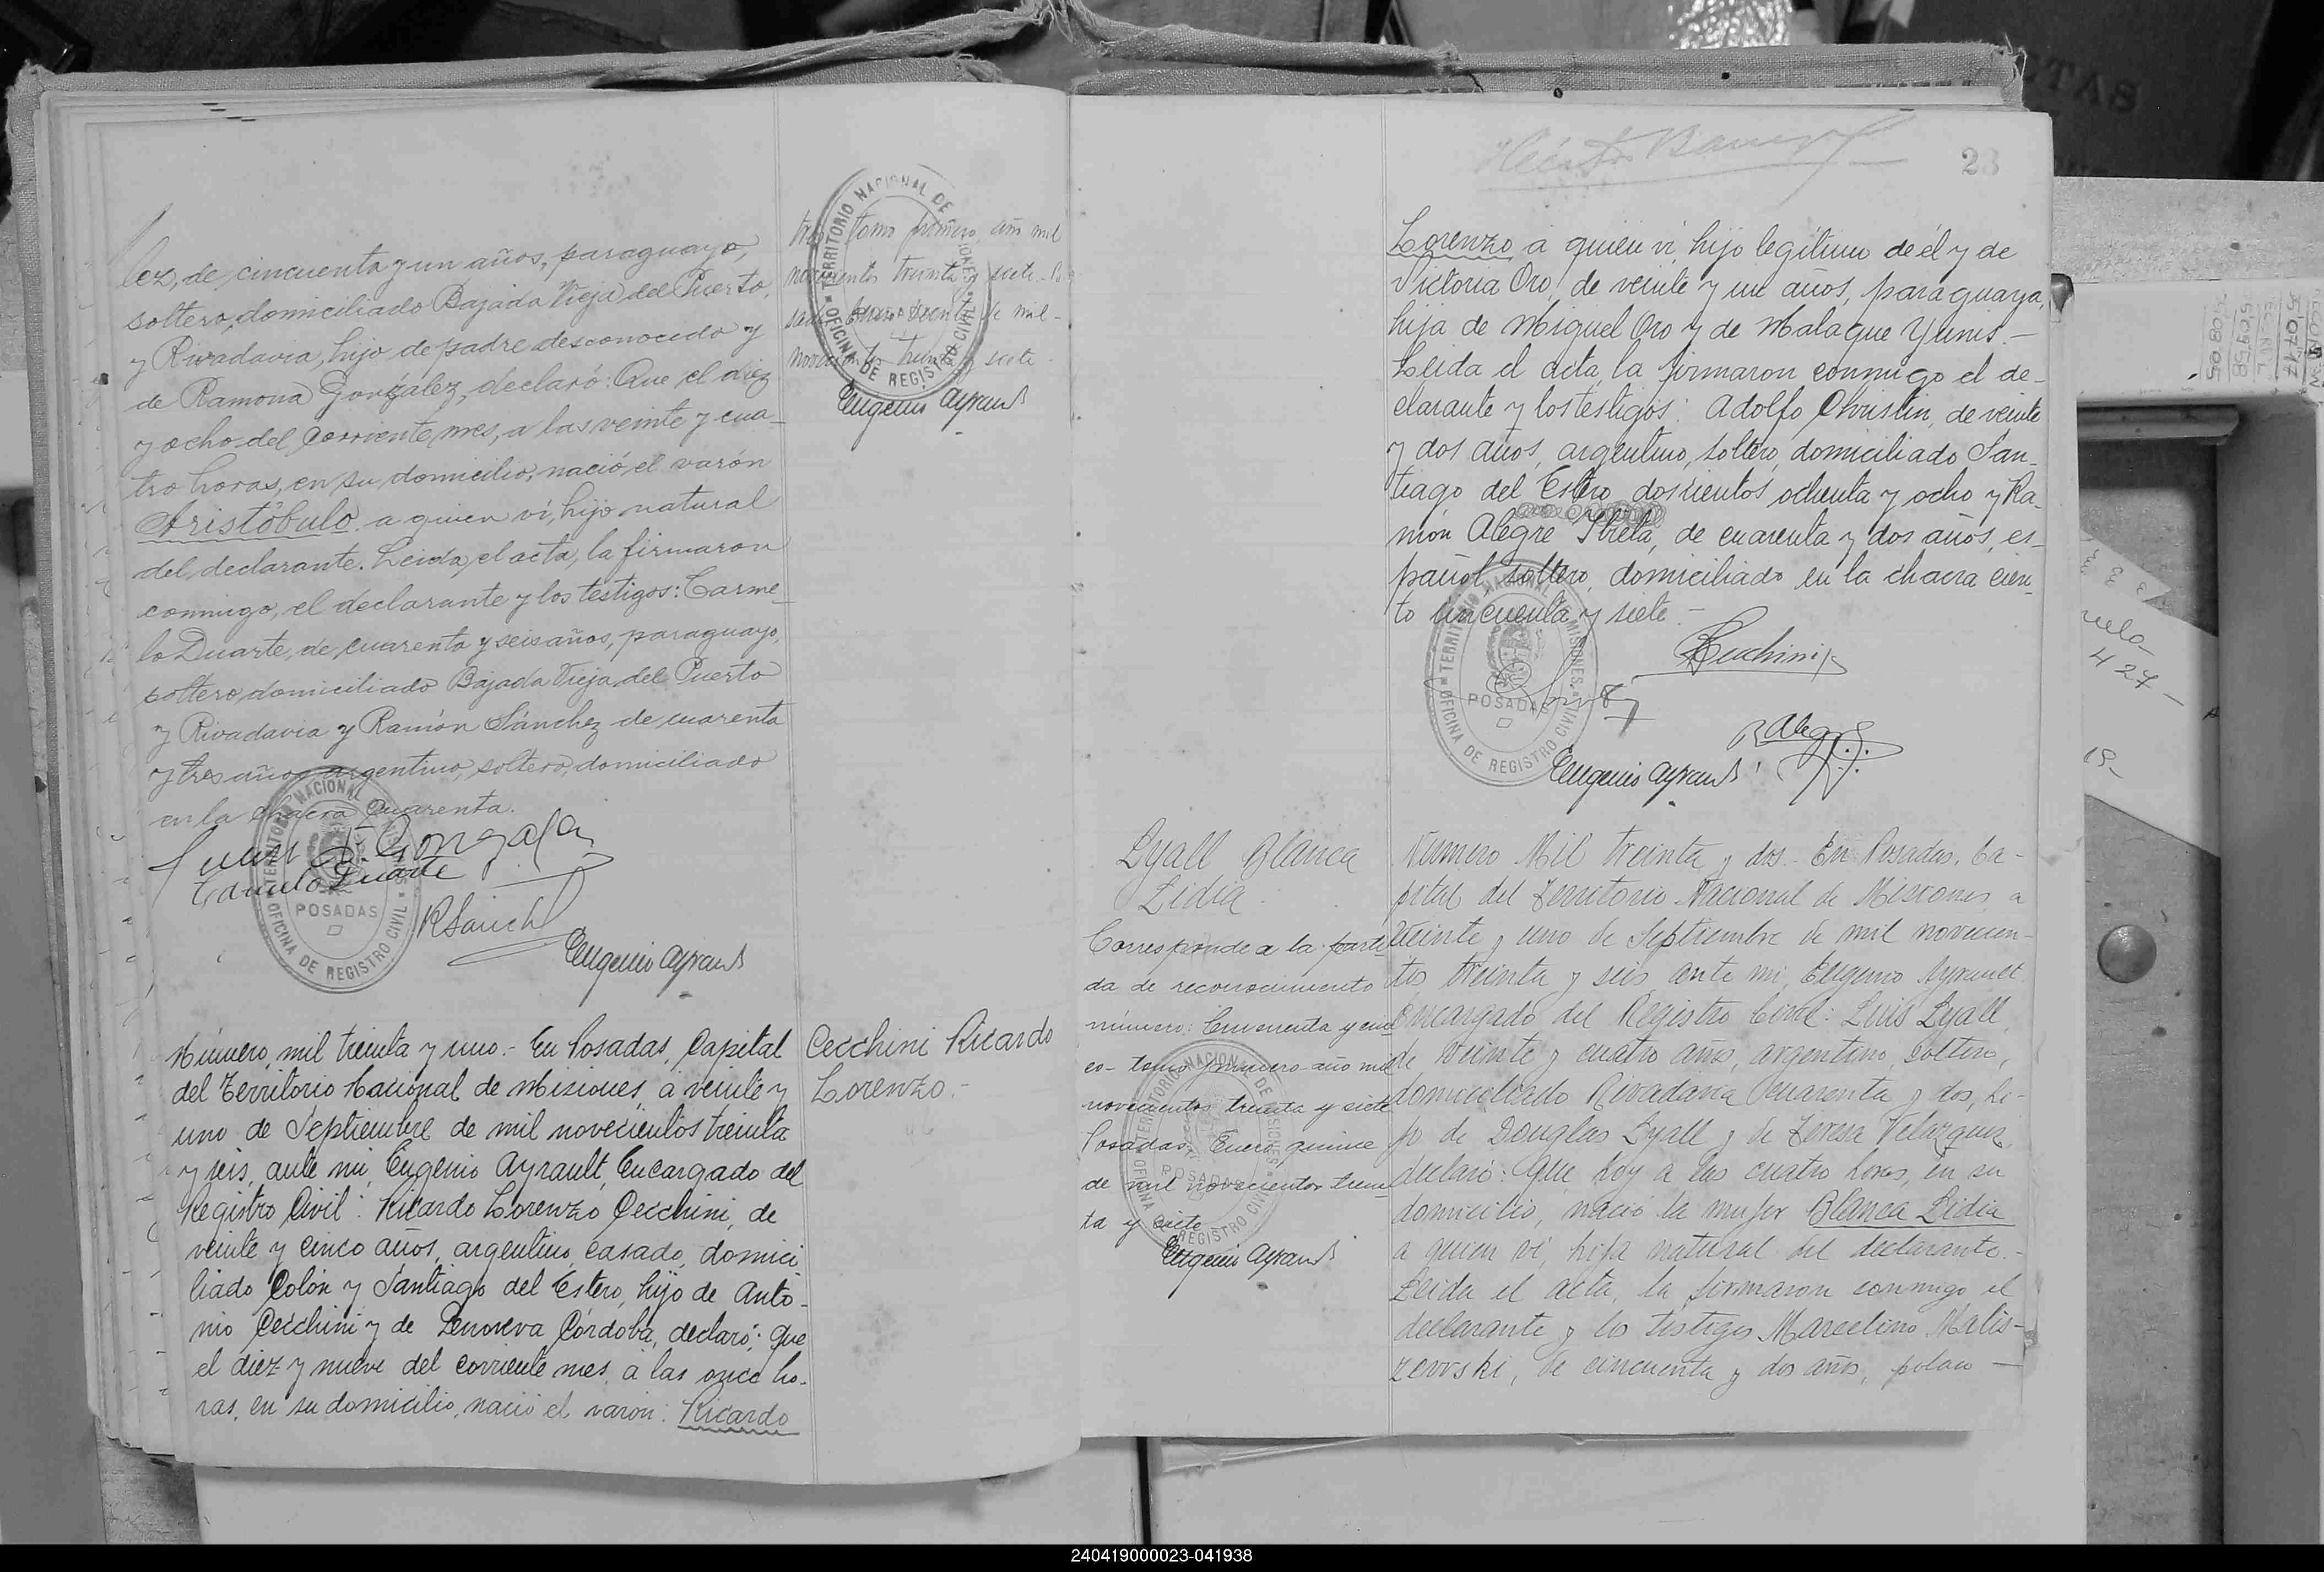 lez, de cincuenta y un años, paraguayo,
soltero, domiciliado Bajada Vieja del Puerto,
y Rivadavia, hijo de padre desconocido y
de Ramona González, declaró: Que el diez
y ocho del corriente mes, a las veinte y cua-
tro horas, en su domicilio, nació el varón
Aristóbulo a quien ví, hijo natural
del declarante. Leida el acta, la firmaron
conmigo, el declarante y los testigos: Carme-
lo Duarte, de cuarenta y seis años, paraguayo,
soltero, domiciliado Bajada Vieja del Puerto
y Rivadavia y Ramón Sánchez de cuarenta
y tres años, argentino, soltero, domiciliado
en la chacra cuarenta.
Duarte
RSanch
Eugenio Ayrault
TERRITORIO NACIONAL
POSADAS
OFICINA DE REGISTRO CIVIL
tomo primero, año mil
novecientos treinta y siete
de mil
novecientos treinta y siete
TERRITORIO NACIONAL DE MISIONES
OFICINA DE REGISTRO CIVIL
Eugenio Ayrault
Número, mil treinta y uno.- En Posadas, Capital
del Territorio Nacional de Misiones, a veinte y
uno de Septiembre de mil novecientos treinta
y seis, ante mi, Eugenio Ayrault, Encargado del
Registro Civil: Ricardo Lorenzo Cecchini, de
veinte y cinco años, argentino, casado, domici
liado Colón y Santiago del Estero, hijo de Anto-
nio Cecchini y de Córdoba, declaró: Que
el diez y nueve del corriente mes, a las once ho-
ras, en su domicilio, nació el varón: Ricardo
Cecchini Ricardo
Lorenzo.-
23
Lorenzo, a quien vi, hijo legitimo de él y de
Victoria Oro, de veinte y un años, paraguaya,
hija de Miguel Oro y de Malaque Yunis.-
Leida el acta, la firmaron conmigo el de-
clarante y los testigos: Adolfo Christin, de veinte
y dos años, argentino, soltero, domiciliado San-
tiago del Estero doscientos ochenta y ocho y Ra-
món Alegre de cuarenta y dos años, es-
pañol, soltero, domiciliado en la chacra cien-
to cincuenta y siete.-
Cecchini
TERRITORIO NACIONAL MISIONES
POSADAS
OFICINA DE REGISTRO CIVIL
R Alegre
Eugenio Ayrault
Lyall Blanca
Lidia.
Corresponde a la parti-
da de reconocimiento
número: Cincuenta y cin-
co- tomo primero- año mil
novecientos treinta y siete
Posadas, Enero, quince
de mil novecientos trein-
ta y siete
TERRITORIO NACIONAL DE MISIONES
POSADAS
OFICINA DE REGISTRO CIVIL
Eugenio Ayrault
Número Mil treinta y dos.- En Posadas, Ca-
pital del Territorio Nacional de Misiones a
veinte y uno de Septiembre de mil novecien-
tos treinta y seis, ante mi, Eugenio Ayrault
Encargado del Registro Civil: Luis Lyall,
de veinte y cuatro años, argentino, soltero,
domiciliado Rivadavia cuarenta y dos, hi-
jo de Douglas Lyall y de Teresa Velazquez,
declaró: Que hoy a las cuatro horas, en su
domicilio, nació la mujer Blanca Lidia
a quien ví, hija natural del declarante.-
Leida el acta, la firmaron conmigo el
declarante y los testigos Marcelino Malis-
zevvski, de cincuenta y dos años, polaco -
427-
19-
240419000023-041938